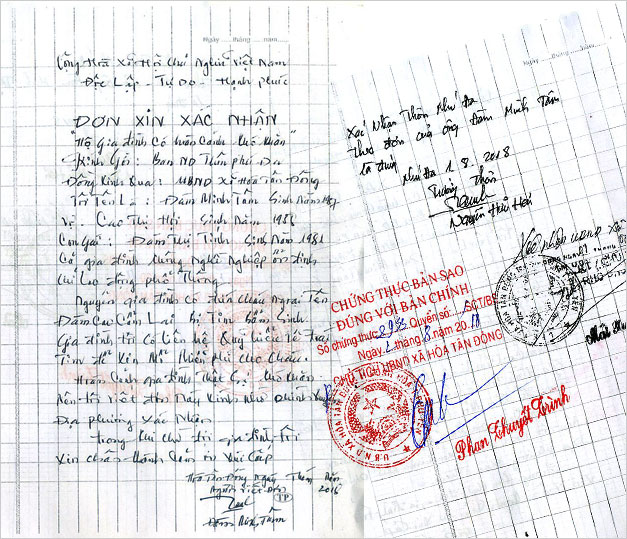 Ngày ...... tháng ...... năm ......
Cộng Hòa Xã Hội Chủ Nghĩa Việt Nam
Độc Lập - Tự Do - Hạnh phúc
ĐƠN XIN XÁC NHẬN
"Hộ Gia đình Có hoàn Cảnh Khó Khăn"
Kính Gởi: Ban ND Thôn phú Đa
Đồng Kính Qua: UBND Xã Hòa Tân Đông
Tôi Tên Là: Đàm Minh Tâm Sinh Năm
Vợ. Cao Thị Hội Sinh Năm
Con Gái: Đàm Thị Tính Sinh Năm 1981
Cả gia đình không Nghề Nghiệp ổn định
Chỉ Lao động phổ Thông
Nguyên gia đình có đứa Cháu Ngoại Tên
Đàm Cao Cẩm Lai Bị Tim bẩm Sinh
Gia đình tôi có Liên hệ Quỹ
Tim để Xin Mổ Miễn Phí Cho Cháu.
Hoàn Cảnh gia đình Thật Sự Khó Khăn
Nên Tôi Viết đơn Này Kính Nhờ Chính
Địa phương Xác Nhận
Trong Khi Chờ đợi gia đình Tôi
Xin chân thành Cảm ơn
Hòa Tân Đông Ngày Tháng Năm
Người Viết Đơn 2018
Đàm Minh Tâm
Ngày ...... tháng ...... năm ......
Xác Nhận Thôn Phú Đa
theo đơn của ông Đàm Minh Tâm
là đúng
Phú Đa 1.8.2018
Trưởng Thôn
Nguyễn Hữu
Xác nhận UBND Xã
CHỨNG THỰC BẢN SAO
ĐÚNG VỚI BẢN CHÍNH
Số chứng thực: Quyển số: SGT/BS
Ngày tháng 8 năm 2018
CHỦ TỊCH UBND XÃ HÒA TÂN ĐÔNG
U.B.N.D XÃ HÒA TÂN ĐÔNG
Phan Thuyết Trình